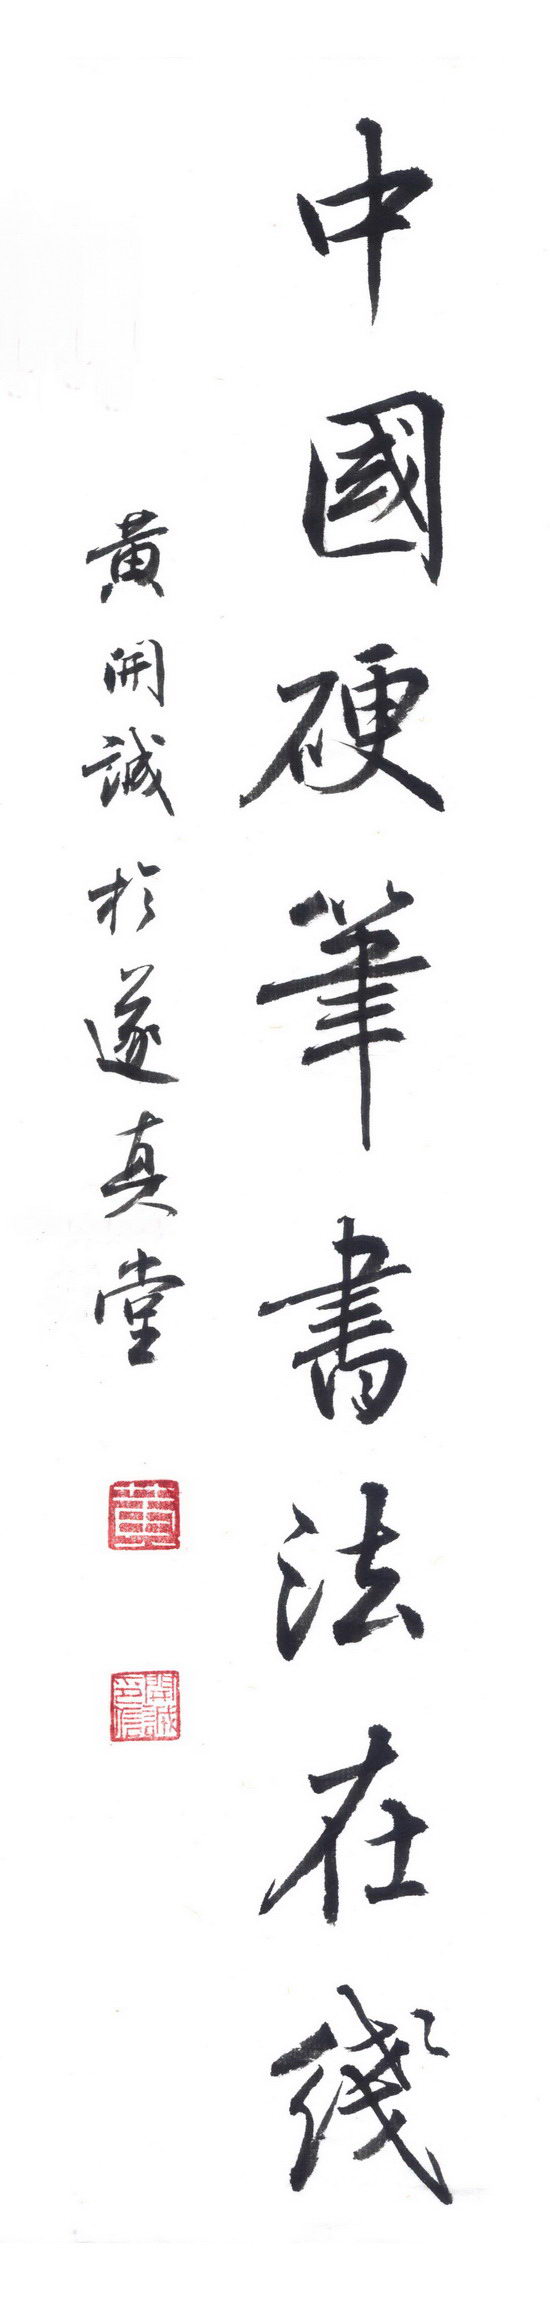 中國硬筆書法在綫
黃開誠於遂真堂
黃
開誠印信